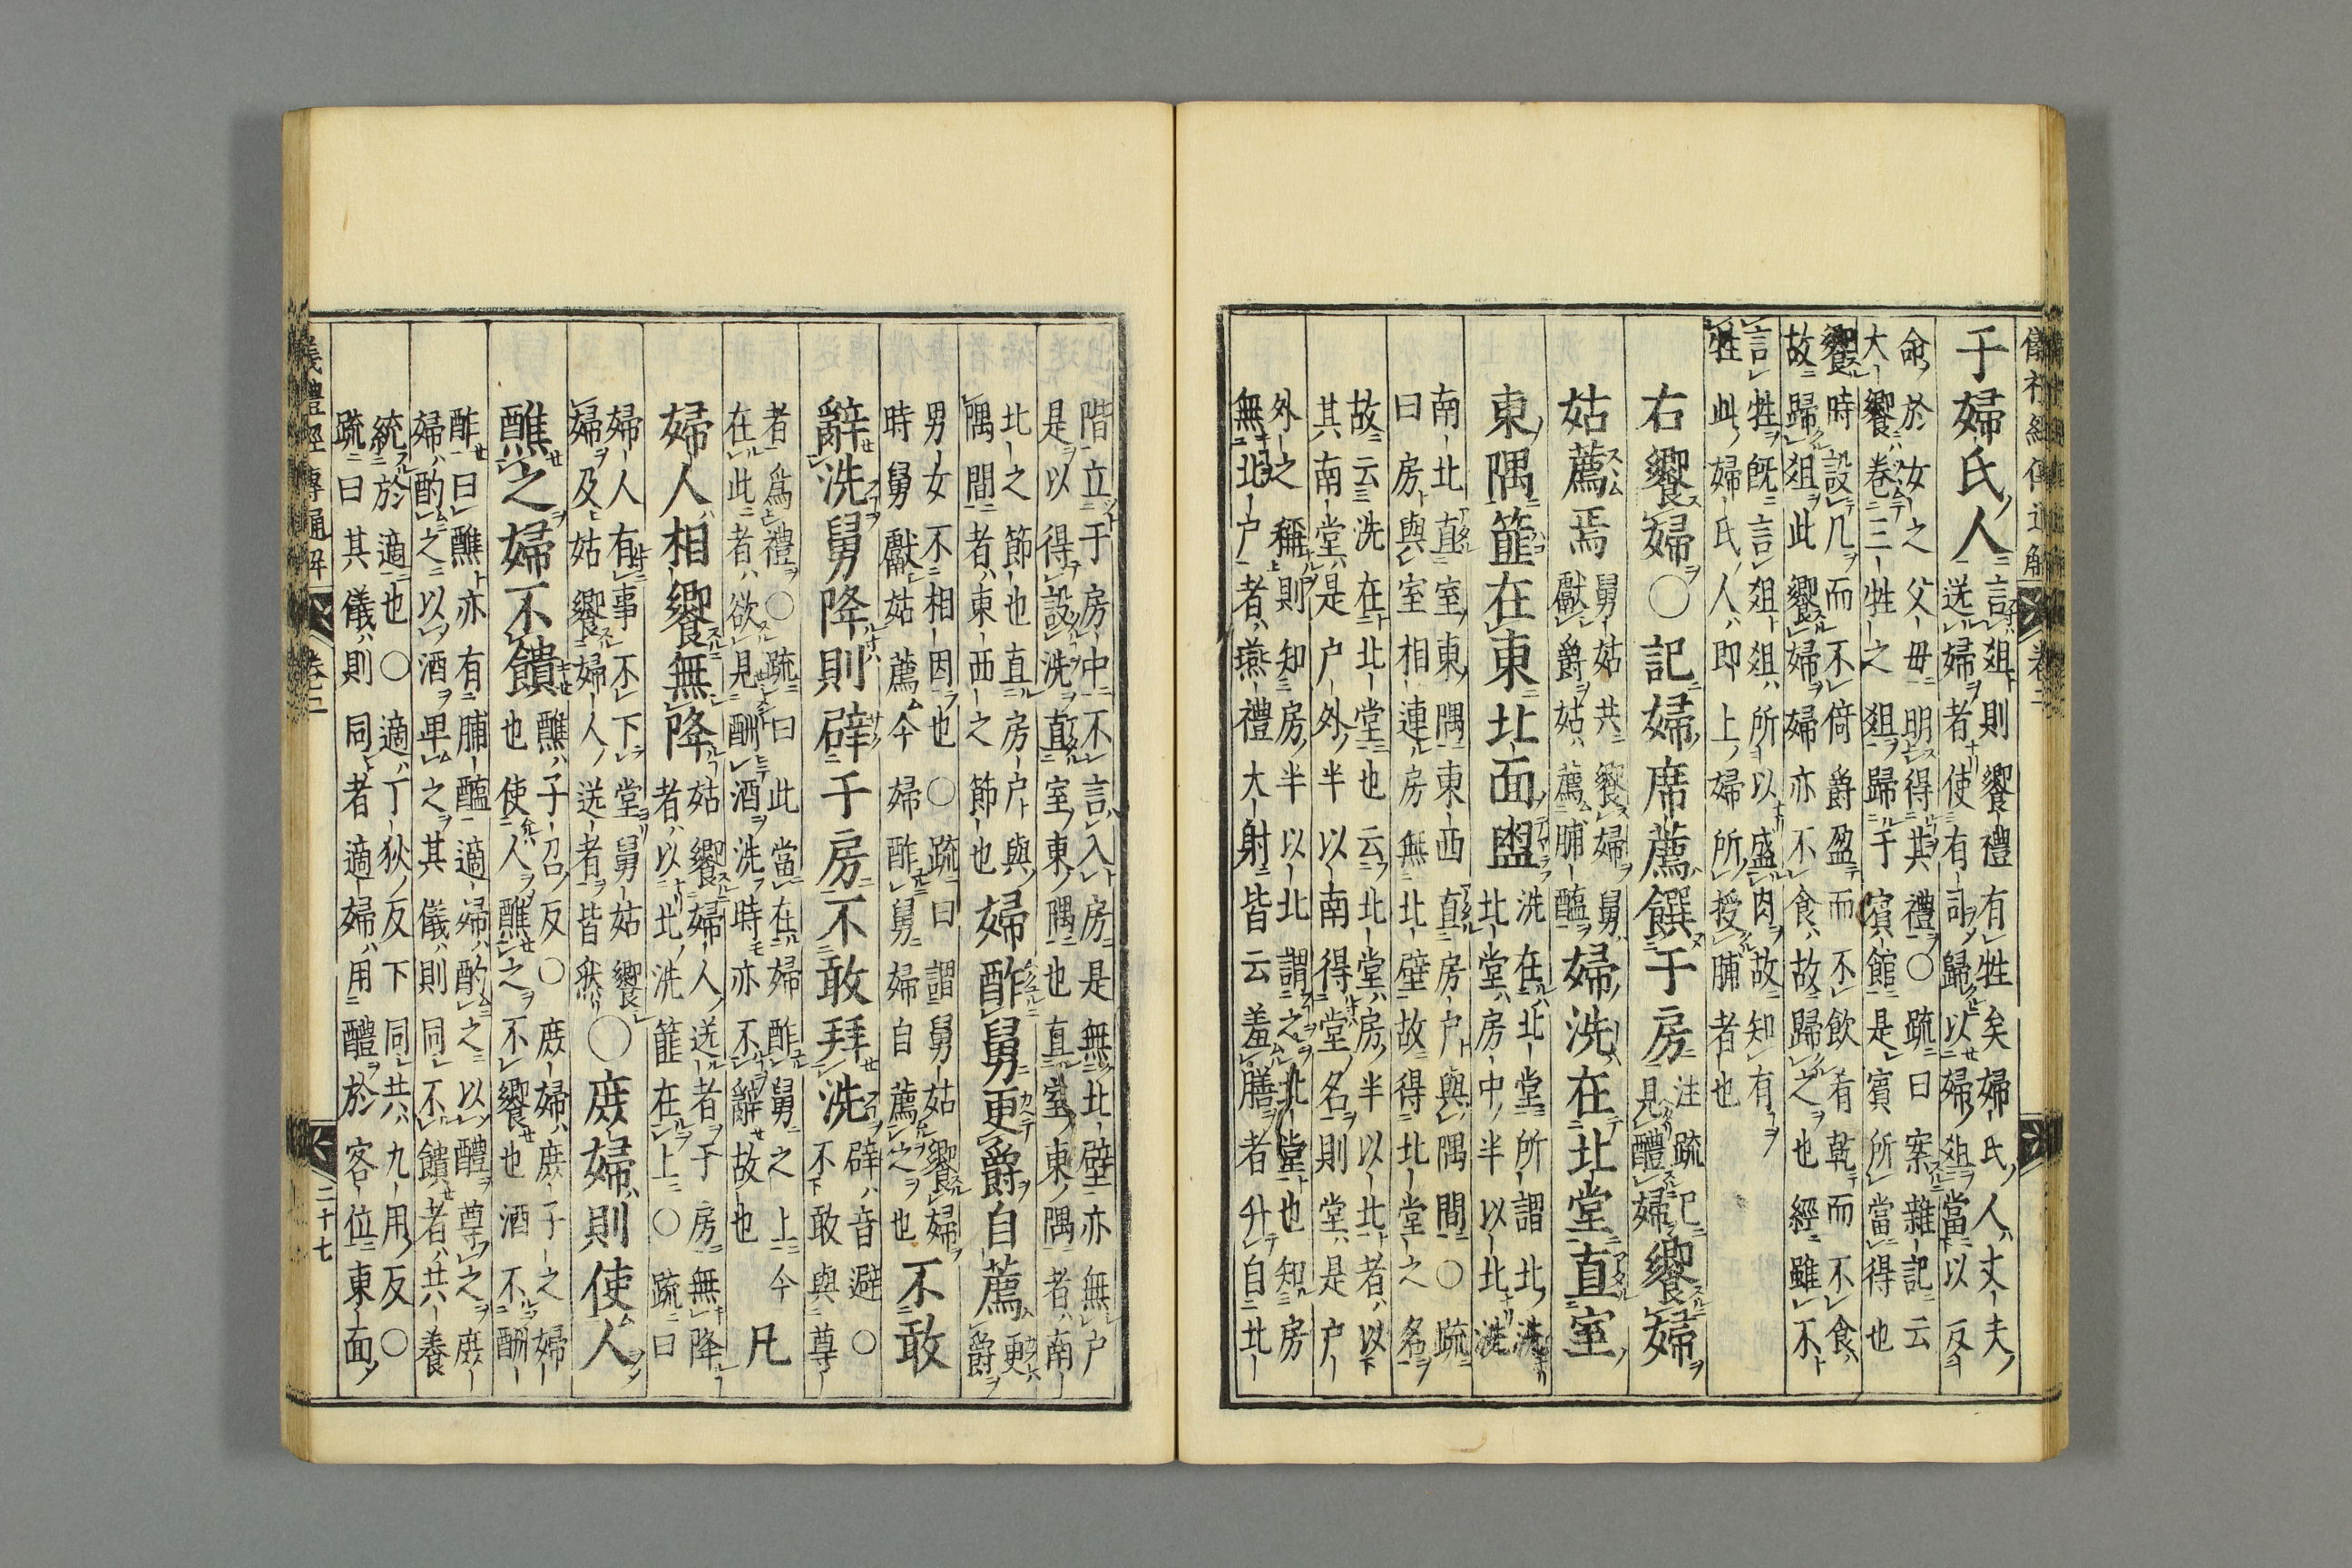 儀禮經傳通解 卷二
于婦氏人
言俎則饗禮有牲矣婦氏人丈夫
送婦者使有司歸以婦俎當以反
命於女之父母明得其禮○疏曰案雜記云
大饗卷三牲之俎歸于賓館是賓所當得也
饗時設几而不倚爵盈而不飲肴乾而不食
故歸俎此饗婦婦亦不食故歸之也經雖不
言牲既言俎俎所以盛肉故知有
牲此婦氏人即上婦所授脯者也
右饗婦○記婦席薦饌于房
注疏記
見醴婦
饗婦
姑薦焉
舅姑共饗婦舅
獻爵姑薦脯醢
婦洗在北堂直室
東隅篚在東北面盥
洗在北堂所謂北洗
北堂房中半以北洗
南北直室東隅東西直房戶與隅間○疏
曰房與室相連房無北壁故得北堂之名
故云洗在北堂也云北堂房半以北者以
其南堂是户外半以南得堂名則堂是户
外之稱則知房半以北謂之北堂也知房
無北户者燕禮大射皆云羞膳者升自北
階立于房中不言入房是無北壁亦無户
是以得設洗直室東隅也直室東隅者南
北之節也直房户與
隅間者東西之節也
婦酢舅更爵自薦
更
爵
男女不相因也○疏曰謂舅姑饗婦
時舅獻姑薦今婦酢舅婦自薦之也
不敢
辭洗舅降則辟于房不敢拜洗
辟音避○
不敢與尊
者爲禮○疏曰此當在婦酢舅之上今
在此者欲見酬酒洗時亦不辭故也
凡
婦人相饗無降
姑饗婦人送者于房無降
者以北洗篚在上○疏曰
婦人有事不下堂舅姑饗
婦及姑饗婦人送者皆然
○庶婦則使人
醮之婦不饋
醮子召反○庶婦庶子之婦
也使人醮之不饗也酒不酬
酢曰醮亦有脯醢適婦酌之以醴尊之庶
婦酌之以酒卑之其儀則同不饋者共養
統於適也○適丁狄反下同共九用反○
疏曰其儀則同者適婦用醴於客位東面
儀禮經傳通解 卷二 二十七